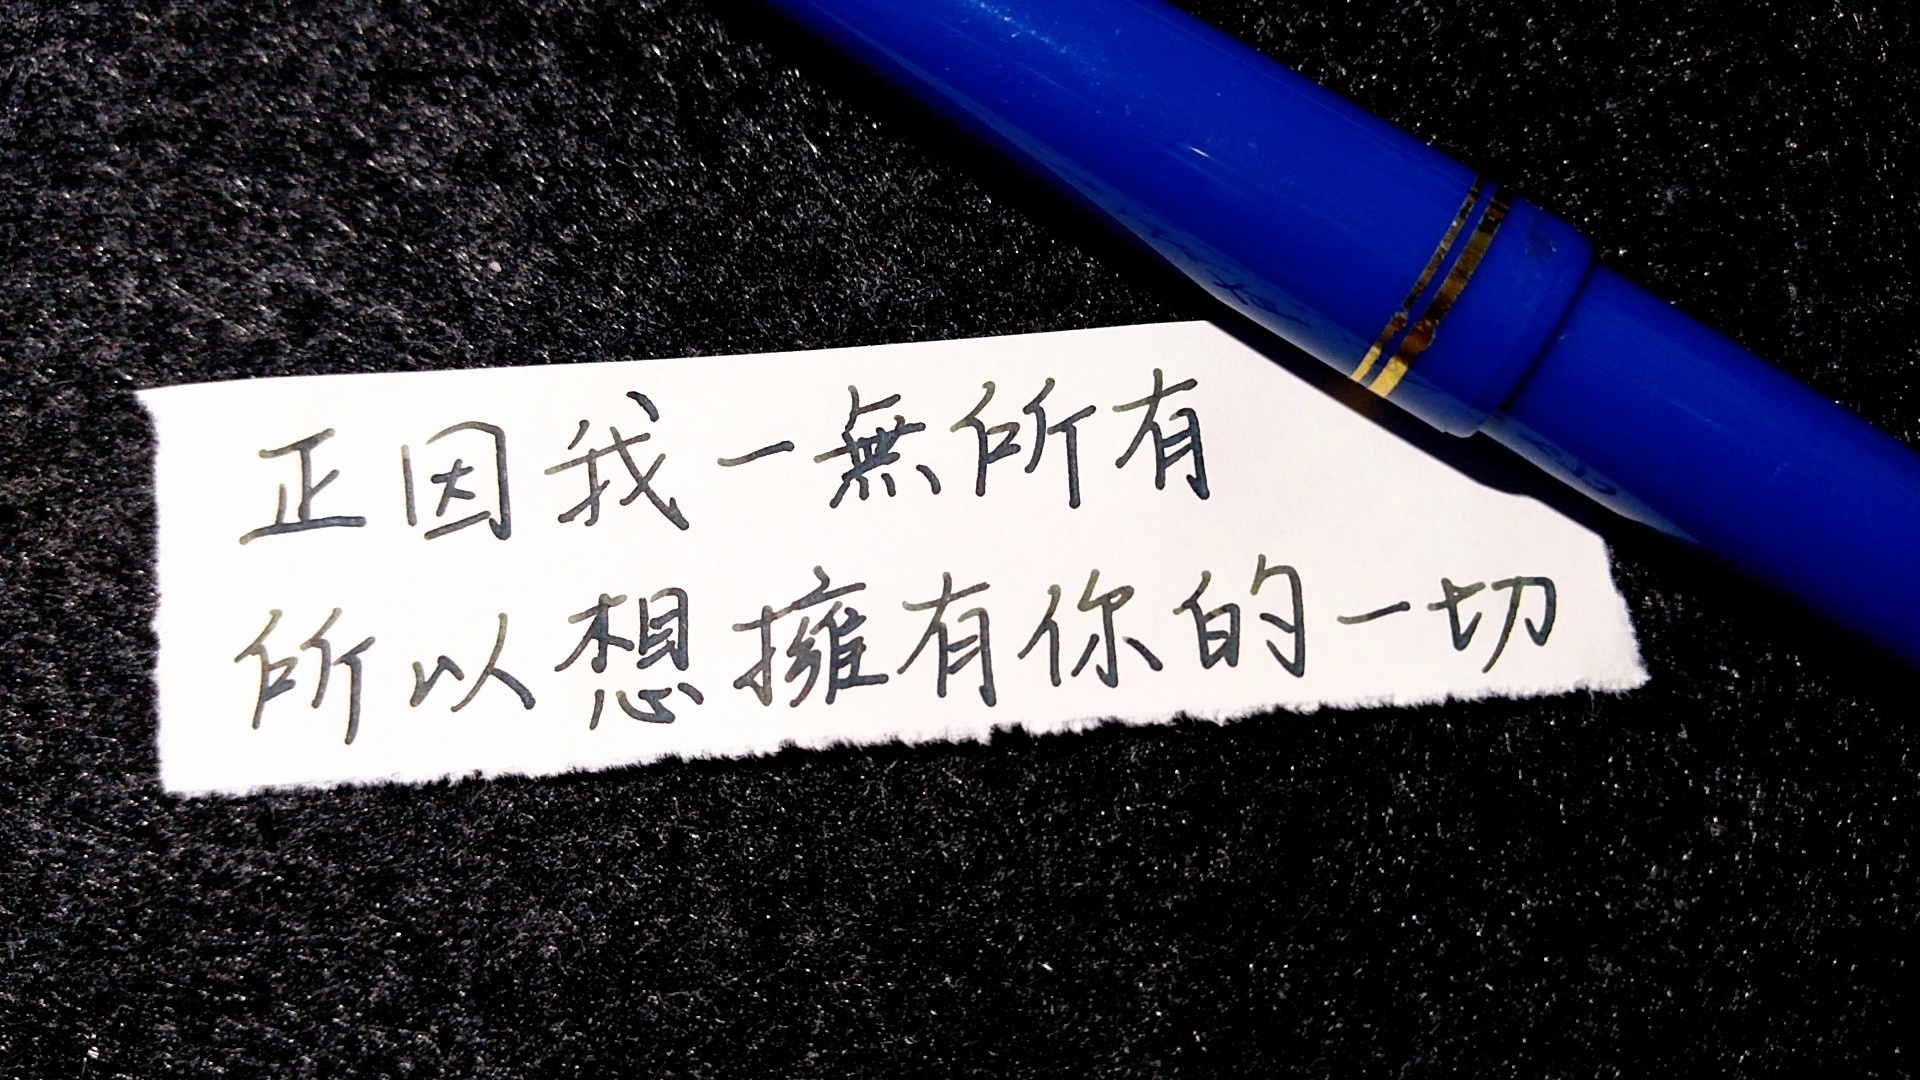 正因我一無所有
所以想擁有你的一切